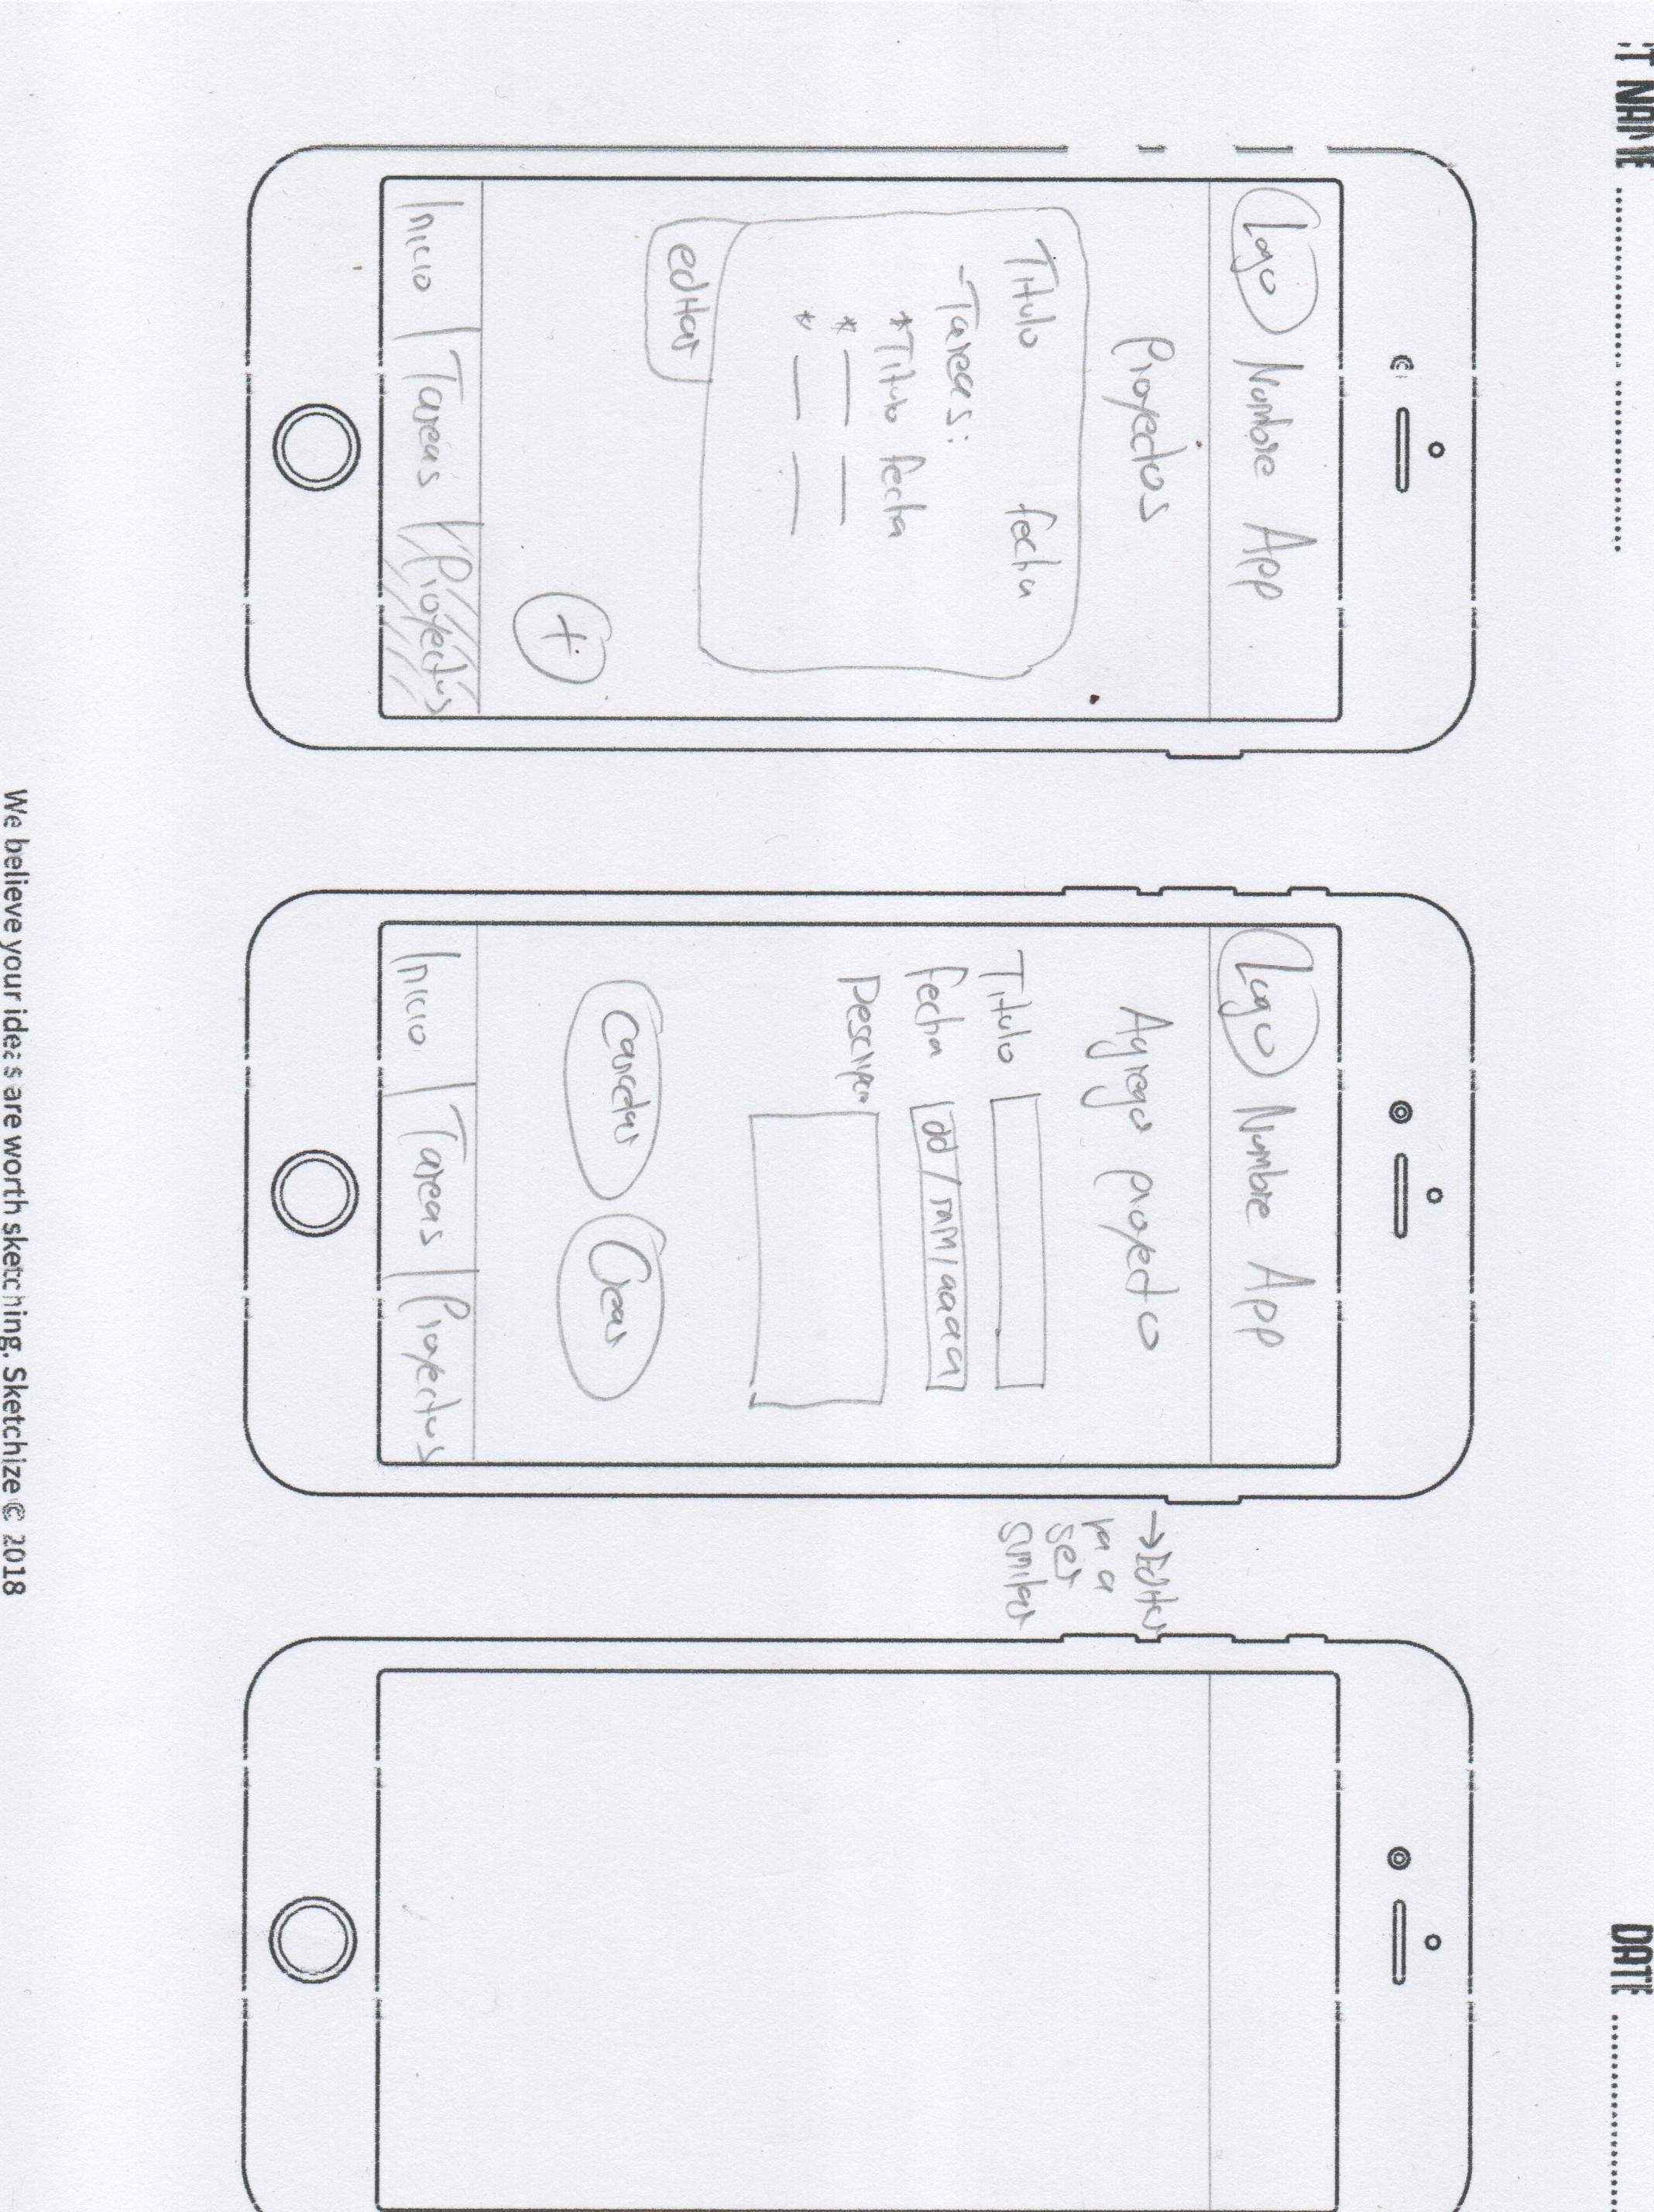 CT NAME .................. ..................
DATE ..................
Logo Nombre App
Proyectos
Titulo fecha
-Tareas:
*Titulo fecha
*
*
editar
+
Inicio Tareas Proyectos
Logo Nombre App
Agregar proyecto
Titulo
fecha dd/mm/aaaa
Descripcion
Cancelar Crear
Inicio Tareas Proyectos
→ Editar
va a
ser
similar
We believe your ideas are worth sketching. Sketchize © 2018